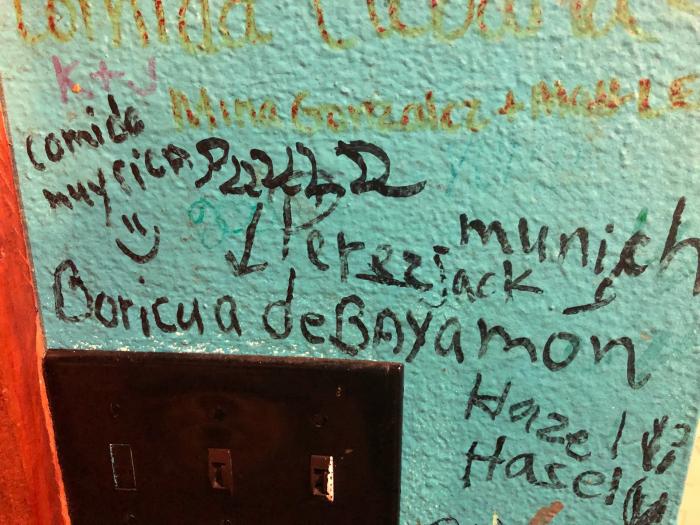 Comida
K+J
Mina Gonzalez + Matt
Comida
muy rica
:)
Perez
munich
jack
Boricua de BAYamon
Hazel
Hasel